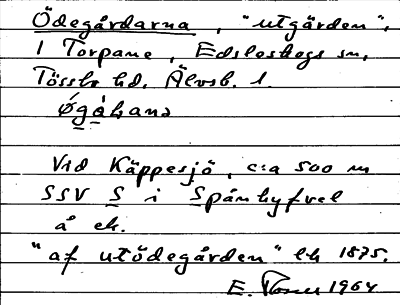 Ödegårdarna, "utgården".
I Torpane, Edsleskogs sn,
Tössbo hd. Älvsb. l.
Vid Käppesjö, c:a 500 m
SSV S i Spånhyfvel
å ek.
"af utödegården" lh 1875.
E. 1964